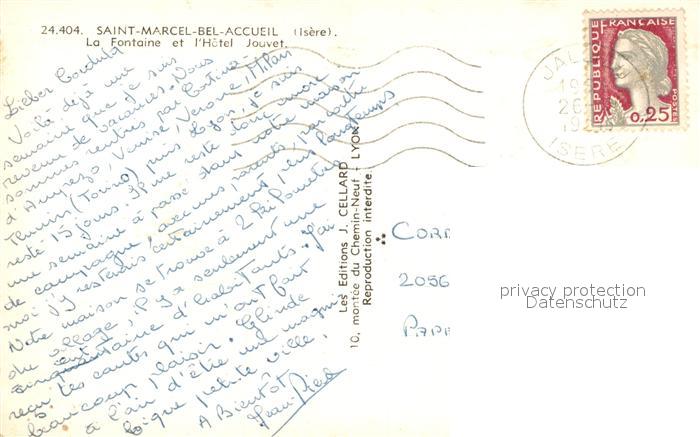 24.404. SAINT-MARCEL-BEL-ACCUEIL (Isère).
La Fontaine et l'Hôtel Jouvet.
Lieber Cordula
Voilà déjà une
semaine que je suis
revenu de vacances. Nous
sommes rentrés par Cortina
d'Ampezo, Venise, Verone, Milan
Turin (Torino) puis Lyon, je suis
resté 15 jours. Il me reste donc encore
une semaine à passer dans notre maison
de campagne, avec mes parents, par contre
moi j'y resterais certainement plus longtemps
Notre maison se trouve à 2 kilomètres
du village. Il y a seulement une
cinquantaine d'habitants. J'ai
reçu tes cartes qui m'ont fait
beaucoup plaisir.
à l'air d'être une magni-
fique petite ville.
A Bientôt
Jean-
Les Editions J. CELLARD
10, montée du Chemin-Neuf - LYON
Reproduction interdite.
REPUBLIQUE FRANÇAISE
0,25
POSTES
JAL
19
26
19
ISERE
CORR
2056
PAPE
privacy protection
Datenschutz